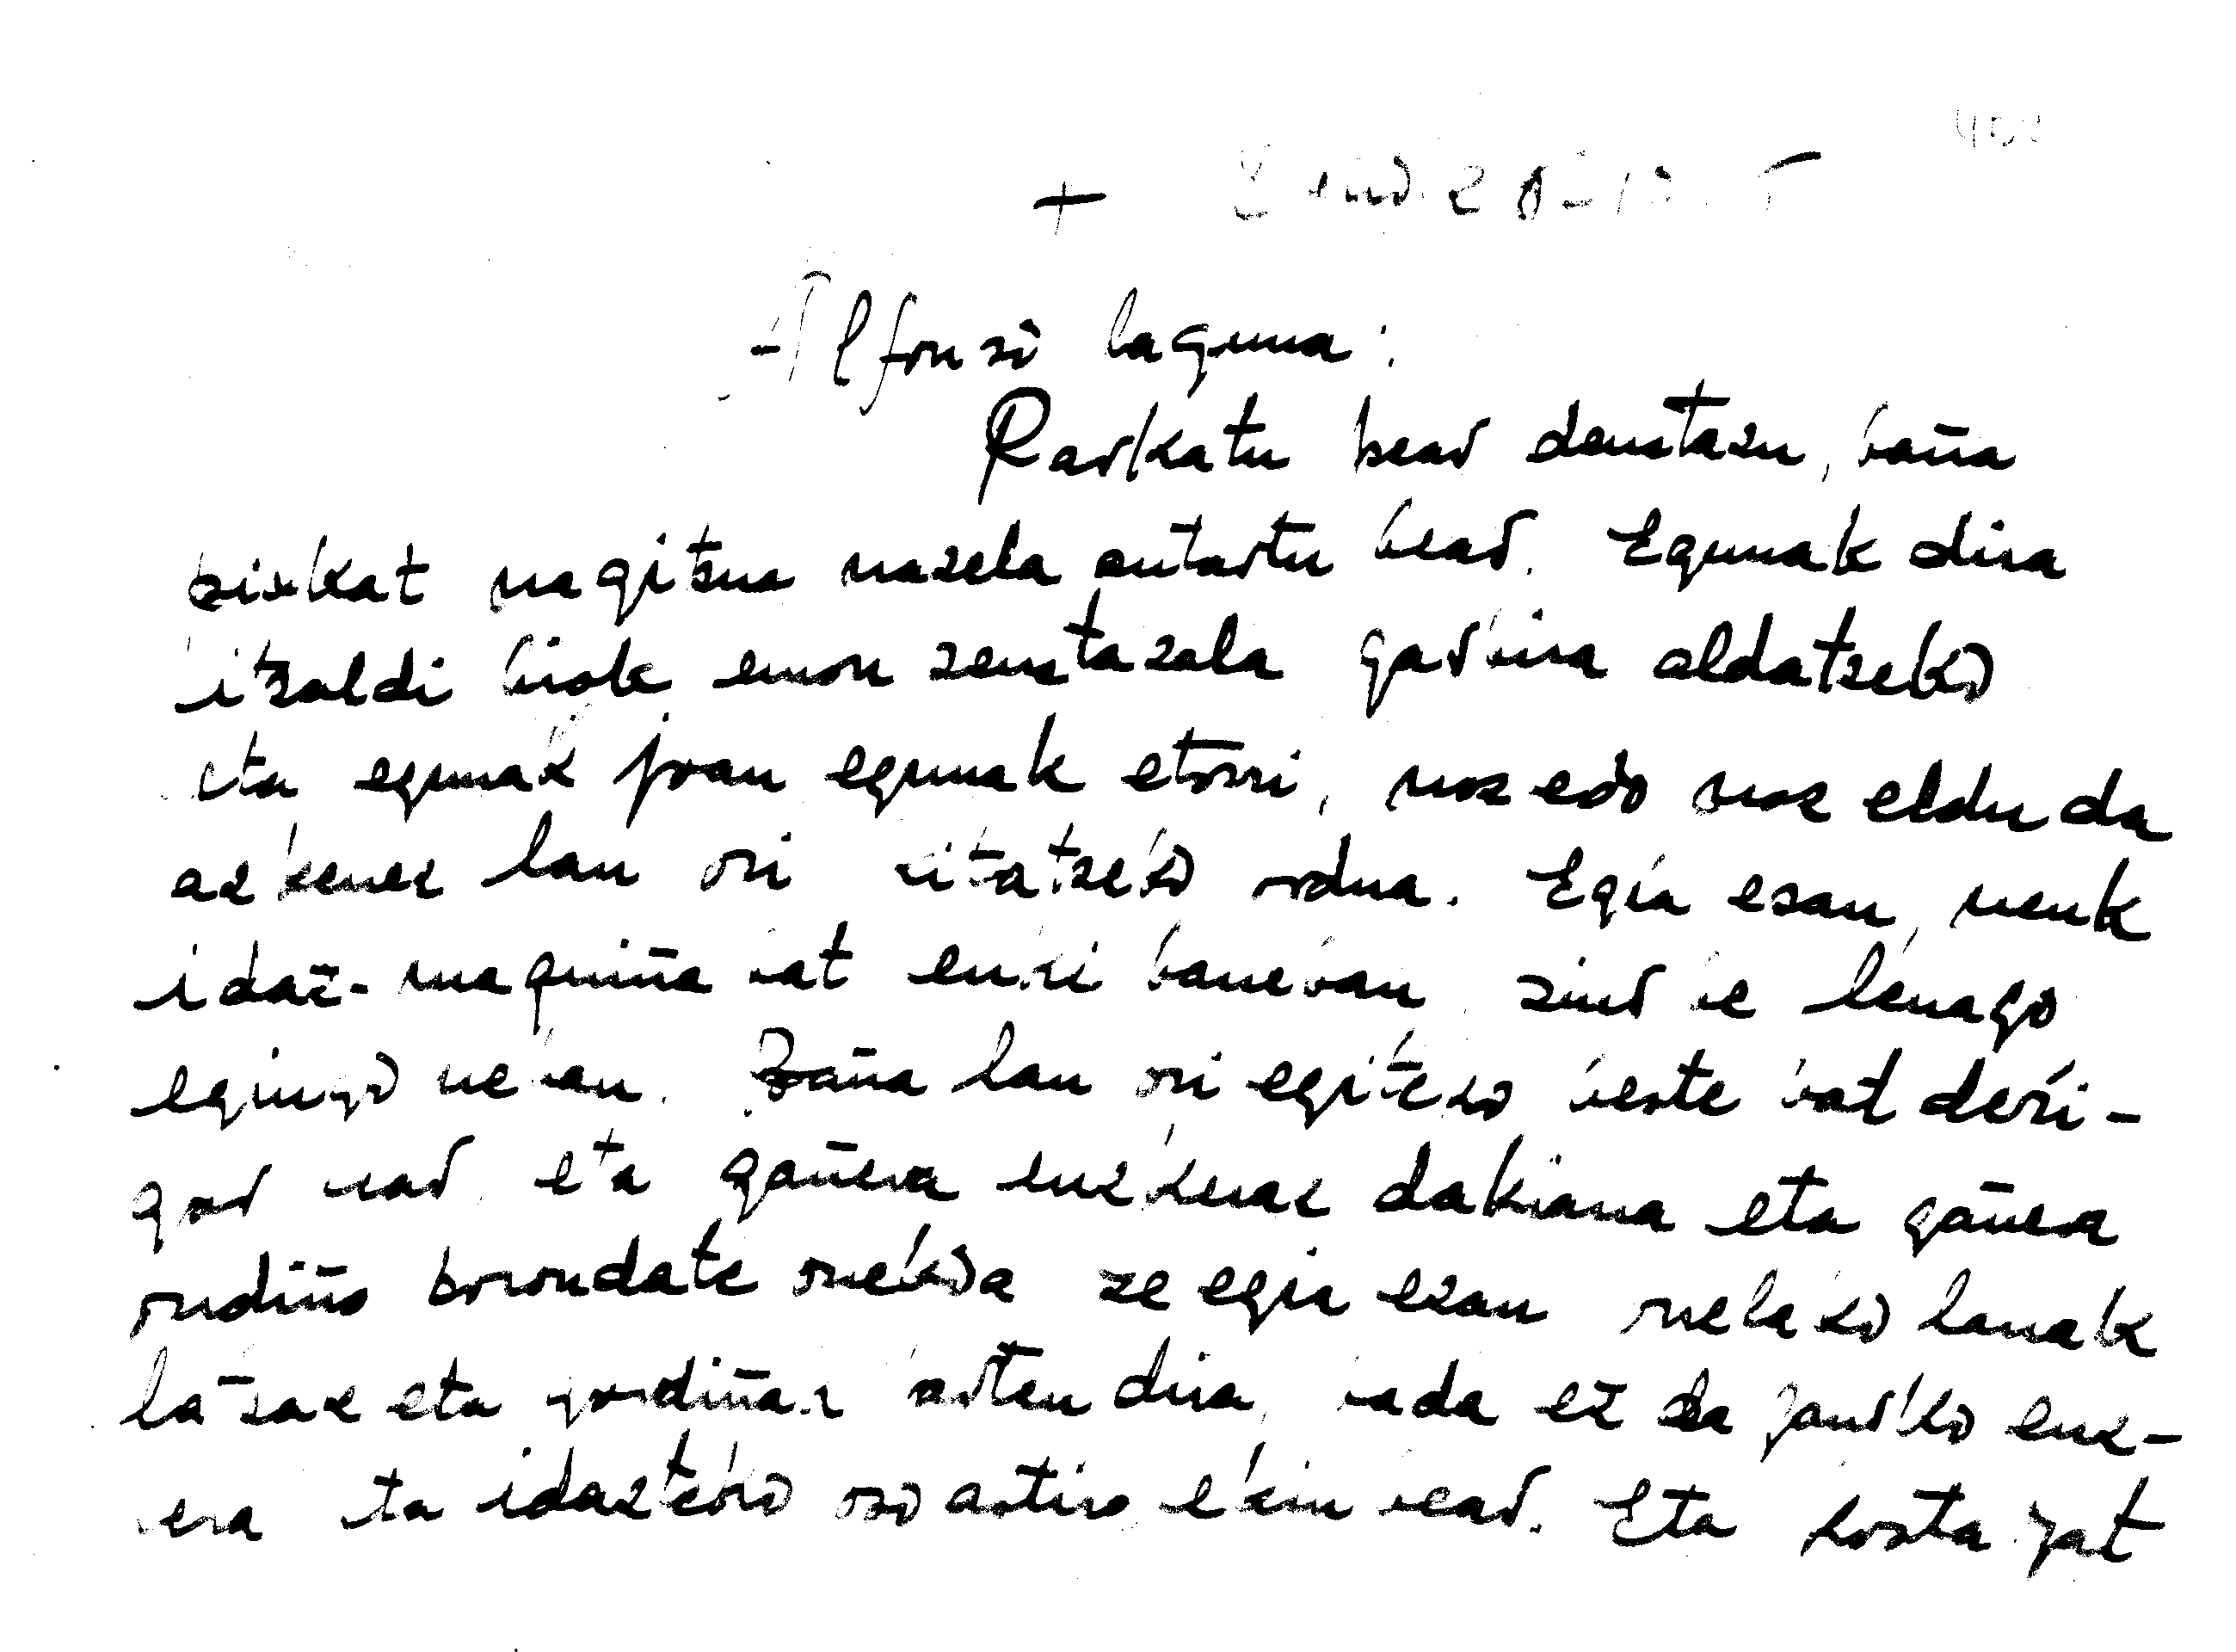 +
Alfonso laguna:
Parkatu bear deustazu, baña
pixkat nagitsua nazela autortu bear. Egunak dira
itzaldi biok emon zeustazala garbira aldatzeko
eta egunak joan egunak etorri, noz edo noz eldu da
azkenez lan ori ditatzeko ordua. Egia esan, neuk
idaz-maquiña bat euki baneban ziur be lenago
egingo neban. Baña lan ori egiteko beste bat derri-
gor bear eta gañera euzkeraz dakiana eta gañera
orudiño borondate onekoa ze egia esan onelako lanak
latzak eta gordiñak dira, bada ez da jausiko euz-
kera ta idazteko oso astiro ekin bear. Eta kosta jat